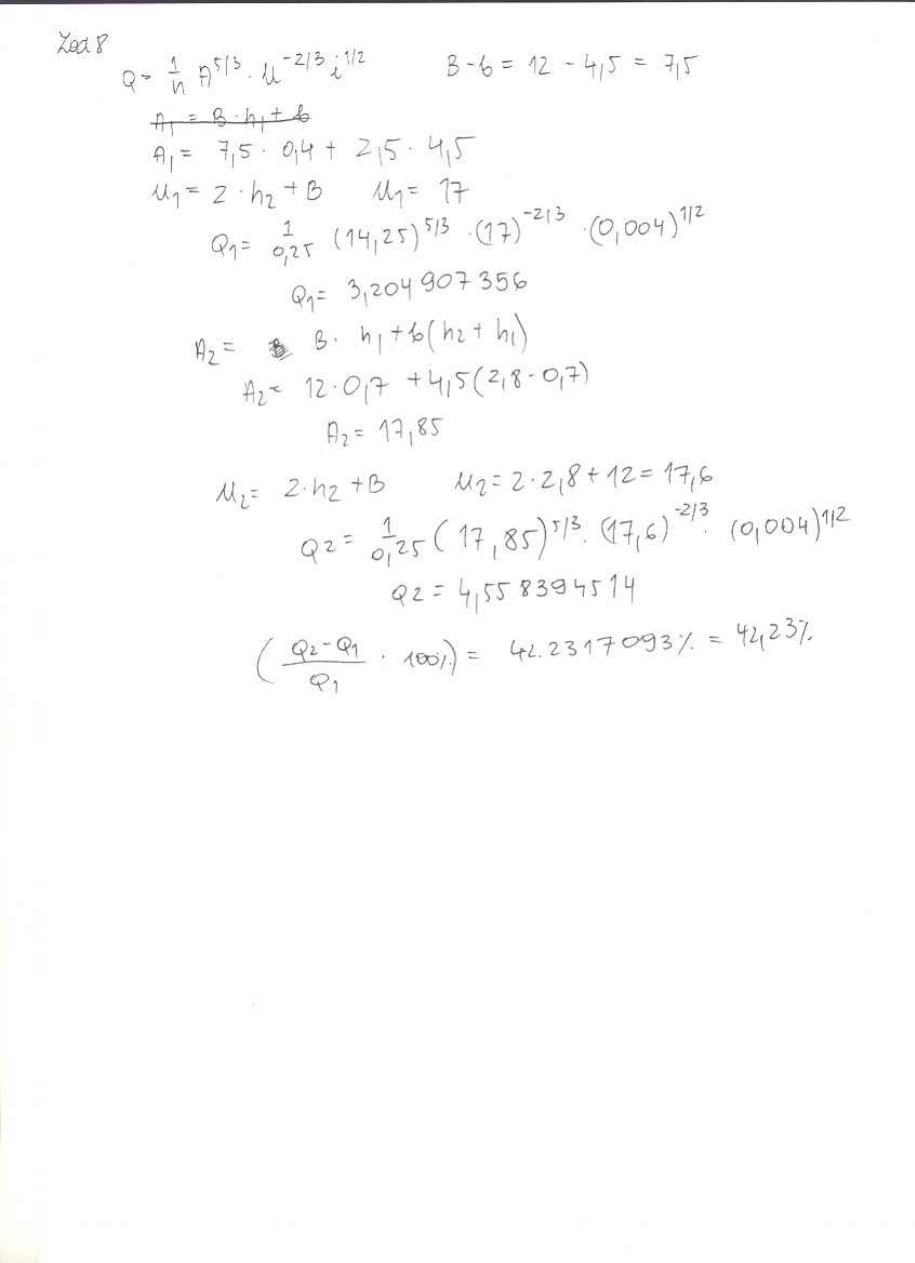 Zad 8
Q = 1/n A^5/3 · U^-2/3 i^1/2    B - b = 12 - 4,5 = 7,5
A₁ = B · h₁ + b
A₁ = 7,5 · 0,4 + 2,5 · 4,5
U₁ = 2 · h₂ + B    U₁ = 17
Q₁ = 1/0,25 (14,25)^5/3 · (17)^-2/3 · (0,004)^1/2
Q₁ = 3,204907356
A₂ = B · h₁ + b(h₂ + h₁)
A₂ = 12 · 0,7 + 4,5(2,8 - 0,7)
A₂ = 17,85
U₂ = 2 · h₂ + B    U₂ = 2 · 2,8 + 12 = 17,6
Q2 = 1/0,25 (17,85)^5/3 · (17,6)^-2/3 · (0,004)^1/2
Q2 = 4,558394514
(Q₂-Q₁/Q₁ · 100%) = 42.2317093% = 42,23%